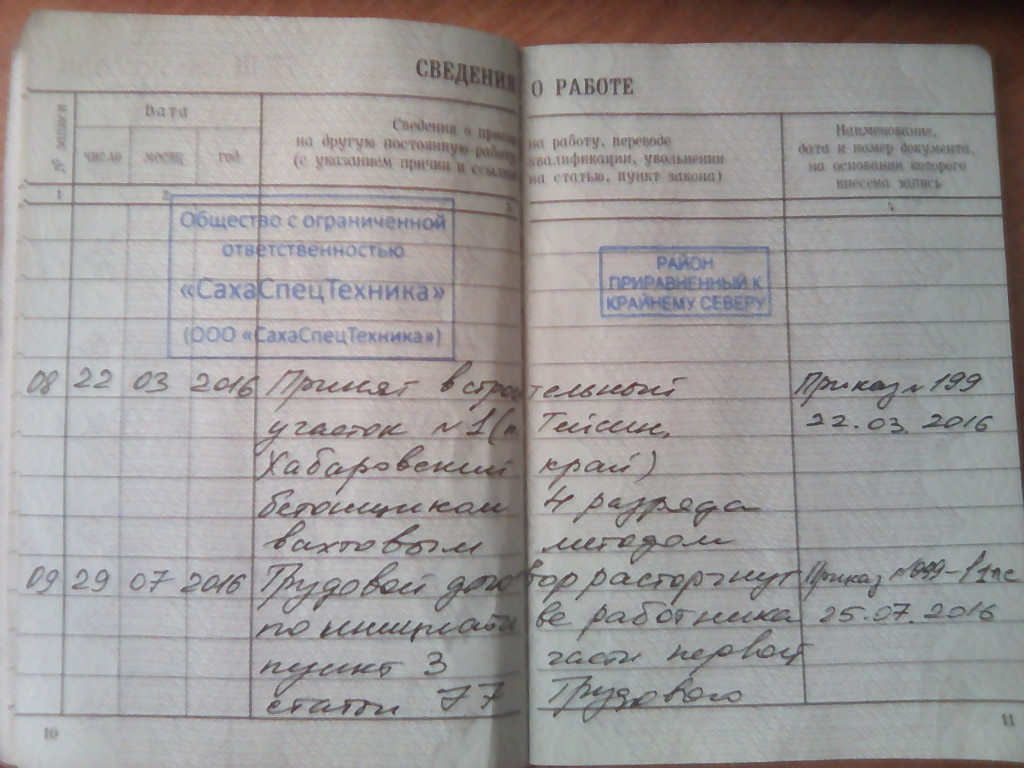 СВЕДЕНИЯ О РАБОТЕ
№ записи
Дата
число месяц год
Сведения о приеме на работу, переводе
на другую постоянную работу, квалификации, увольнении
(с указанием причин и ссылкой на статью, пункт закона)
Наименование,
дата и номер документа,
на основании которого
внесена запись
1 2 3 4
Общество с ограниченной
ответственностью
«СахаСпецТехника»
(ООО «СахаСпецТехника»)
РАЙОН
ПРИРАВНЕННЫЙ К
КРАЙНЕМУ СЕВЕРУ
08 22 03 2016 Принят в строительный Приказ №199
участок №1 (п. Тейсин, 22.03.2016
Хабаровский край)
бетонщиком 4 разряда
вахтовым методом
09 29 07 2016 Трудовой договор расторгнут Приказ
по инициативе работника 25.07.2016
пункт 3 части первой
статьи 77 Трудового
10 11